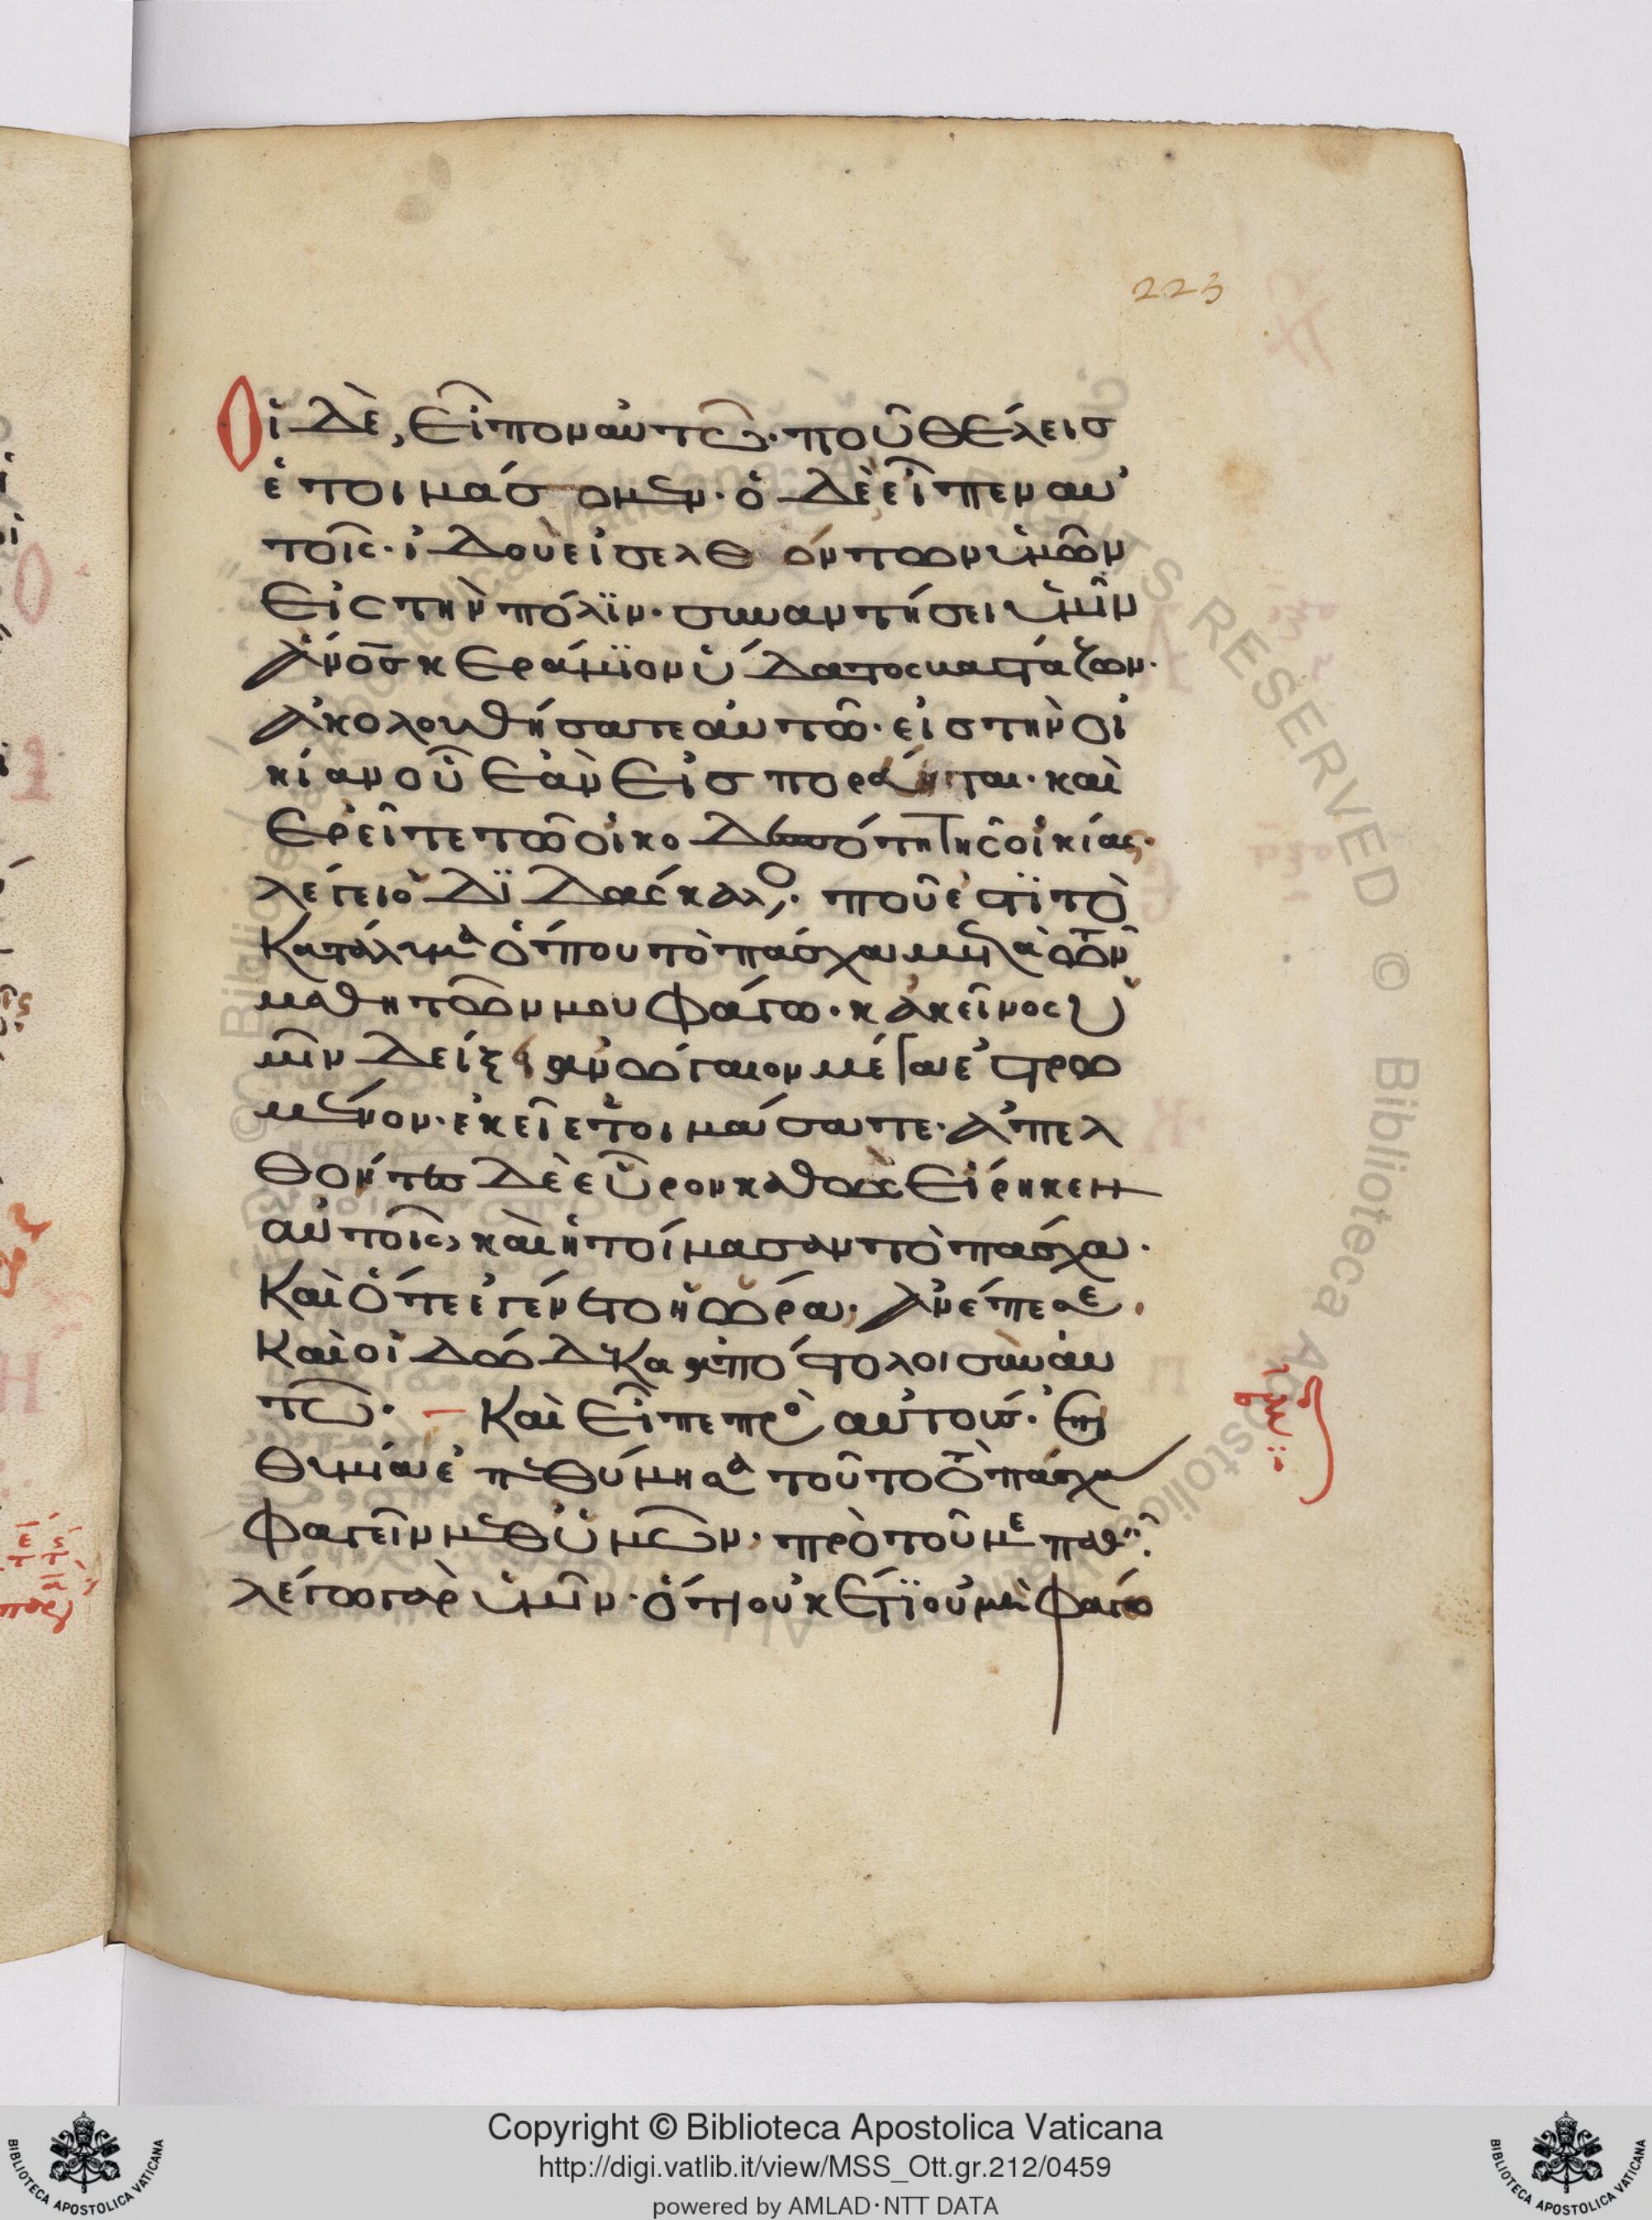 223
Οἱ δὲ, εἶπον αὐτῶ· ποῦ θέλεις
ἑτοιμάσομεν· ὁ δὲ εἶπεν αὐ
τοῖς· ἰδοὺ εἰσελθόντων ὑμῶν
εἰς τὴν πόλϊν· συναντήσει ὑμῖν
ἄνος κεράμϊον ὕδατος βαστάζων·
ἀκολουθήσατε αὐτῶ· εἰς τὴν οἰ
κίαν οὗ ἐὰν εἰσπορεύηται· καὶ
ἐρεῖτε τῶ οἰκοδεσπότη τῆς οἰκίας·
λέγει ὁ δϊδάσκαλος· ποῦ ἐστϊ τὸ
κατάλυμα ὅπου τὸ πάσχα μετὰ τῶν
μαθητῶν μου φάγω· κἀκεῖνος ὑ
μῖν δείξει ἀνώγαιον μέγα ἐστρω
μένον· ἐκεῖ ἑτοιμάσατε· ἀπελ
θόντες δὲ εὗρον καθὼς εἴρηκεν
αὐτοῖς, καὶ ἡτοίμασαν τὸ πάσχα·
Καὶ ὅτε ἐγένετο ἡ ὥρα, ἀνέπεσε,
καὶ οἱ δώδεκα ἀπόστολοι σὺν αὐ
τῶ· Καὶ εἶπε πρὸς αὐτούς· ἐπι
θυμία ἐπεθύμησα τοῦτο τὸ πάσχα
φαγεῖν μεθ ὑμῶν, πρὸ τοῦ με παθεῖν·
λέγω γὰρ ὑμῖν· ὅτι οὐκέτϊ οὐ μὴ φάγω
Copyright © Biblioteca Apostolica Vaticana
http://digi.vatlib.it/view/MSS_Ott.gr.212/0459
powered by AMLAD·NTT DATA
BIBLIOTECA APOSTOLICA VATICANA
BIBLIOTECA APOSTOLICA VATICANA